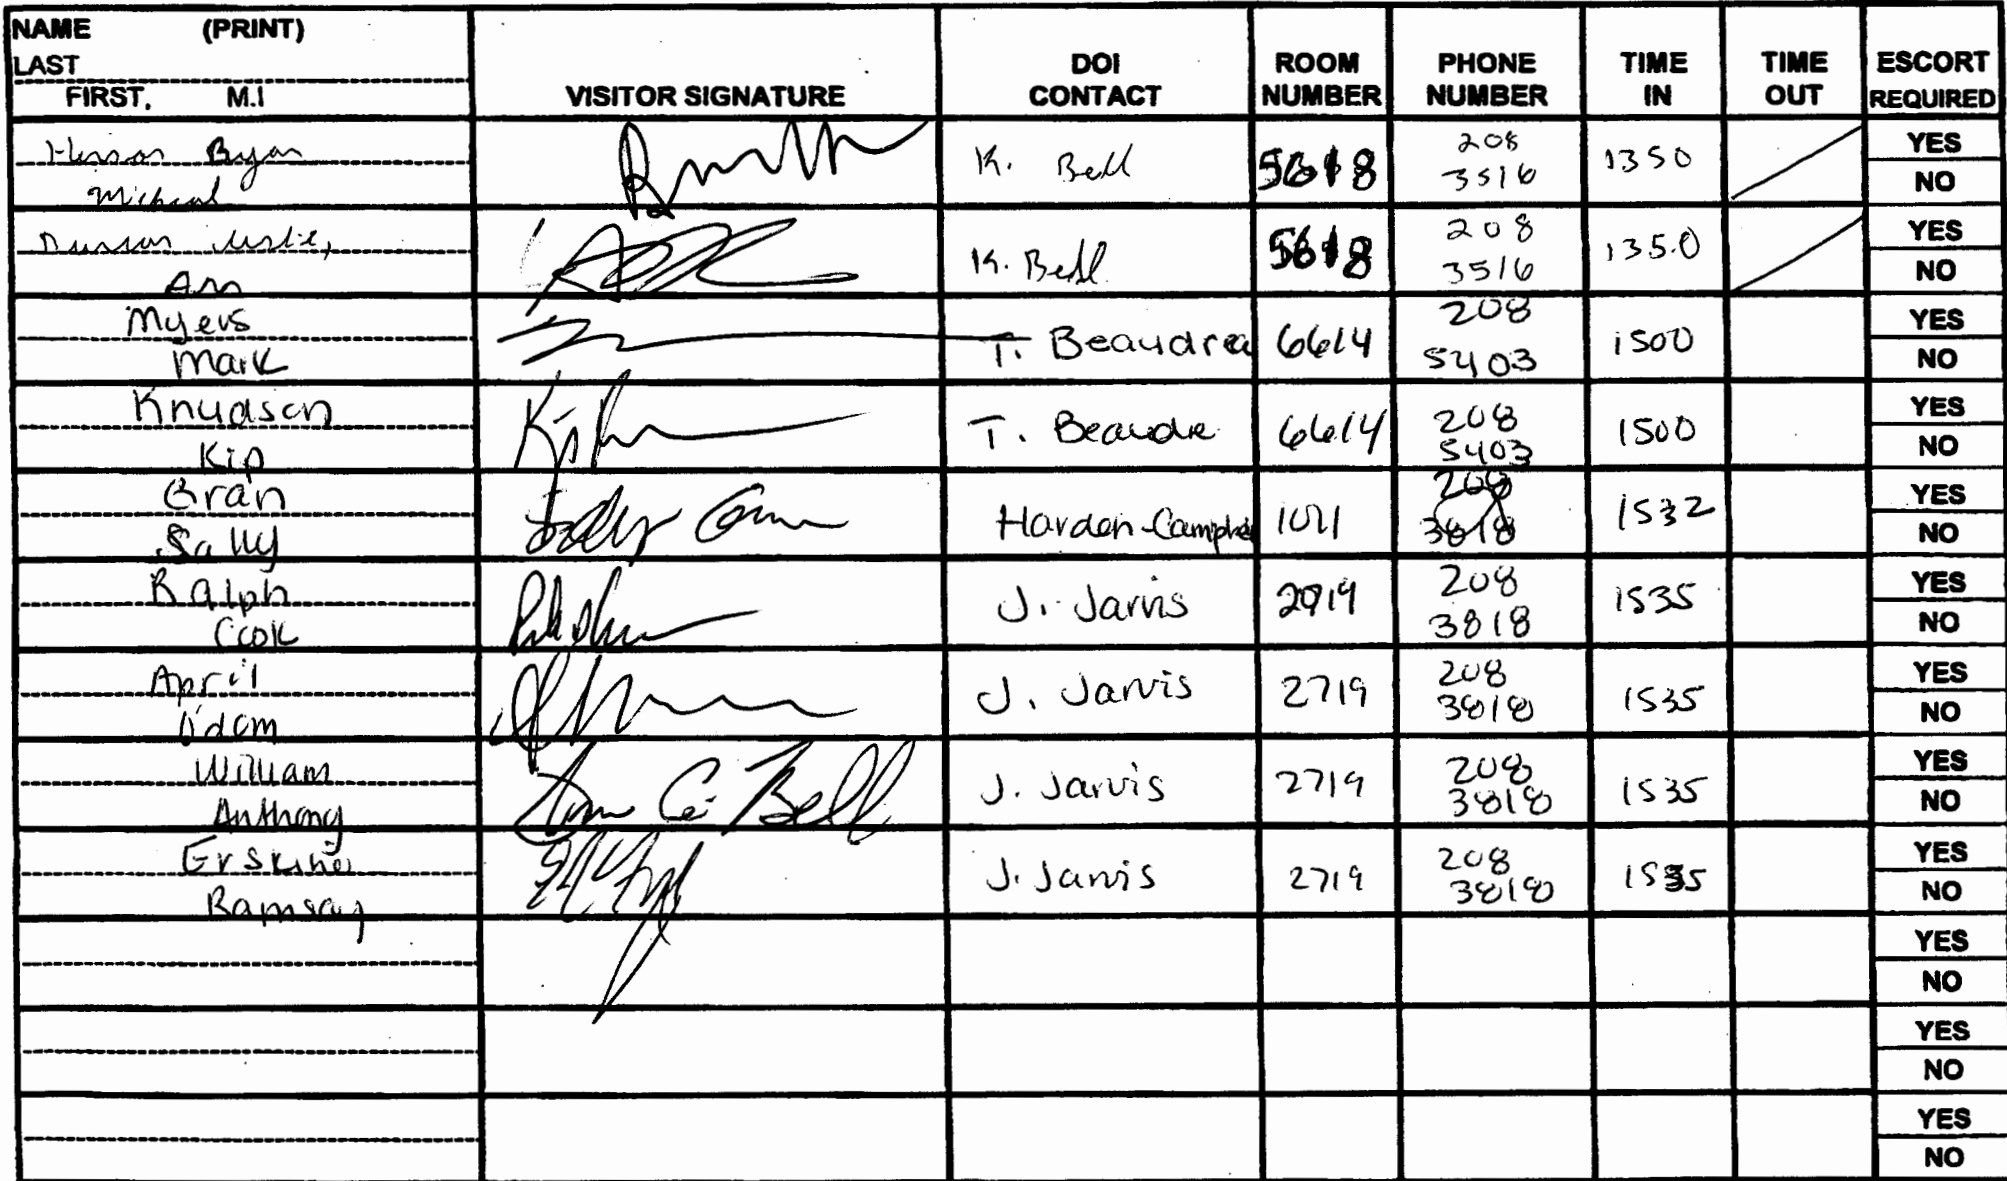 NAME (PRINT)
LAST
FIRST, M.I
VISITOR SIGNATURE
DOI CONTACT
ROOM NUMBER
PHONE NUMBER
TIME IN
TIME OUT
ESCORT REQUIRED
Bryan
Michael
K. Bell
5618
208
3516
1350
YES
NO
Ann
K. Bell
5618
208
3516
1350
YES
NO
Myers
Mark
T. Beaudrea
6614
208
5403
1500
YES
NO
Knudson
Kip
T. Beaudre
6614
208
5403
1500
YES
NO
Gran
Sally
Harden-Campbe
208
3818
1532
YES
NO
Ralph
Cook
J. Jarvis
2719
208
3818
1535
YES
NO
April
J. Jarvis
2719
208
3818
1535
YES
NO
William
Anthony
J. Jarvis
2719
208
3818
1535
YES
NO
Erskine
Ramsay
J. Jarvis
2719
208
3818
1535
YES
NO
YES
NO
YES
NO
YES
NO